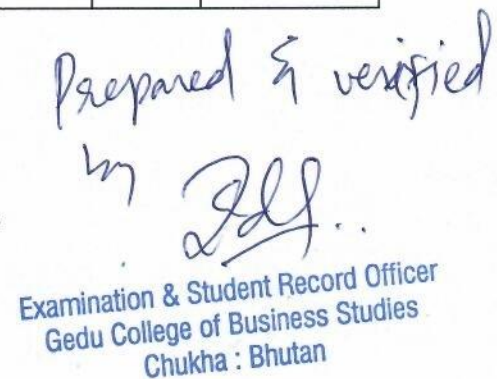 Prepared & verified
by
Examination & Student Record Officer
Gedu College of Business Studies
Chukha : Bhutan